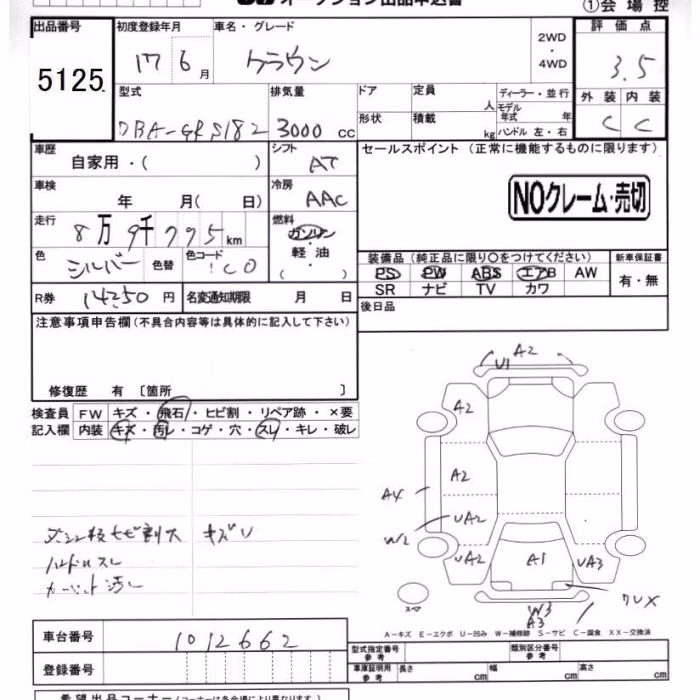 オークション出品申込書
①会場控
出品番号 初度登録年月 車名・グレード 2WD ・ 4WD 評価点
5125 17 6月 クラウン 3.5
型式 排気量 ドア 定員 人 ディーラー・並行 外装 内装
DBA-GRS182 3000 CC 形状 積載 kg モデル年式 年 ハンドル 左・右 C C
車歴 自家用・( ) シフト AT セールスポイント (正常に機能するものに限ります)
車検 年 月( 日) 冷房 AAC NOクレーム・売切
走行 8万9千795km 燃料 ガソリン・軽油・( )
色 シルバー 色替 色コード 1C0 装備品 (純正品に限り○をつけてください) 新車保証書
PS PW ABS エアB AW 有・無
SR ナビ TV カワ
R券 14250円 名変通知期限 月 日 後日品
注意事項申告欄(不具合内容等は具体的に記入して下さい)
修復歴 有 〔箇所 〕
検査員 FW キズ・飛石・ヒビ割・リペア跡・×要
記入欄 内装 キズ・汚レ・コゲ・穴・スレ・キレ・破レ
A2
U1
A2
A2
A4
UA2
W2
UA2 A1 UA3
W3
A3
スペア
ダッシュ板ヒビ割大 キズU
ハンドルスレ
カーペット汚レ
A-キズ E-エクボ U-凹み W-補修跡 S-サビ C-腐食 XX-交換済
車台番号 1012662
登録番号
型式指定番号 参考 類別区分番号 参考
車庫証明用 参考 長さ cm 幅 cm 高さ cm
希望出品コーナー(コーナーは各会場により異なります)